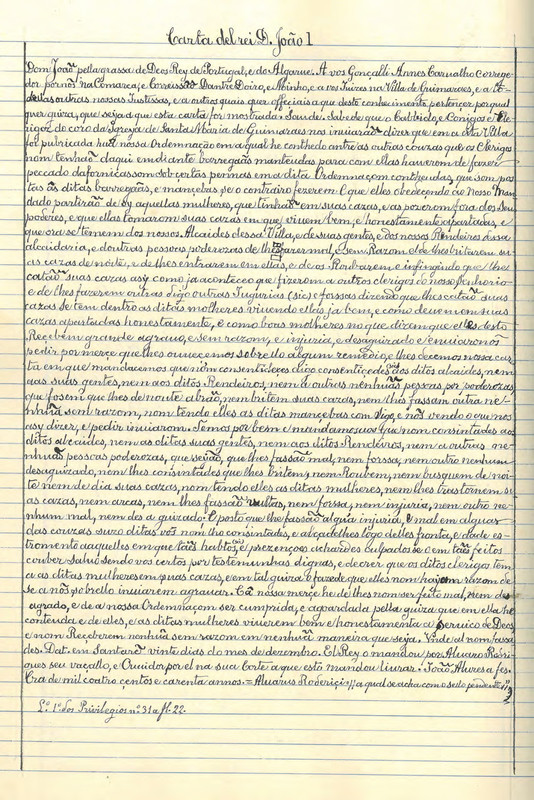 Carta del rei D. João I
Dom João pella grassa de Deos Rey de Portugal, e do Algarue. A vos Gonçalli Annes Carualho correge-
dor por nós na Comarca, e Correissão Dantre Doiro, e Minho, e a vos Juizes na Villa de Guimaraes, e a to-
das as outras nossas Justissas, e a outros quais quer officiais a que desto conhecimento pertencer por qual
quer guiza, que seja a que esta carta for mostrada. Saude. Sabede que o Cabbido, e Conigos e Cle-
rigos do coro da Igreja de Santa Maria de Guimaraes nos inuiarão dizer que em a dita Villa
foi pubricada huã nossa Ordenação em a qual he contheudo antre as outras couzas que os Clerigos
nom tenhão daqui em diante barregãs manteudas para com ellas hauerem de fazer
peccado da fornicassom sob çertas pennas em a dita Ordennaçom contheudas, que som pos-
tas às ditas barregãis, e mançebas, se o contrairo fezerem. E que elles obedecendo ao Nosso Man
dado partirão de sy aquellas mulheres, que tinhão em suas cazas, e as pozerom fora dos seus
poderes, e que ellas tomarom suas cazas em que viuem bem, e honestamente apartadas, e
que ora se temem dos nossos Alcaides dessa Villa, e de suas gentes, e dos nossos Rendeiros dessa
alcaidaria, e doutras pessoas poderozas de lhes fazer mal, e sem Razom, e de lhes britarem su
as cazas de noite, e de lhes entrarem em ellas, e de os Roubarem e infingindo que lhe
catão suas cazas asy como ja aconteceo que fizerom a outros clerigos do nosso Senhorio
e de lhes fazerem outras digo outros Iugurias (sic) e fossas dizendo que lhes catão suas
cazas se tem dentro as ditas molheres viuendo ellas ja bem, e como deuem em suas
cazas apartadas honestamente, e como boas molheres no que dizem que elles desto
Recebem grande agrauo, e sem razom, e injuria, e desaguizado e enuiaronos
pedir por merçe que lhes ouuecemos sobre ello algum remedio, e lhes decemos nossa car
ta em que mandacemos que nom consentideçes digo consentiçedes aos ditos alcaides, nem
aas suas gentes, nem aos ditos Rendeiros, nem a outras nenhuãs pessoas, por poderozas
que fossem que lhes de noute abrão, nem britem suas cazas, nem lhes fassam outra ne-
nhuã sem razom, nom tendo elles as ditas mançebas com sigo, e nós vendo o que nos
assy dizer, e pedir inuiarom. Temos por bem e mandamos uos que nom consintades aos
ditos alcaides, nem as ditas suas gentes, nem aos ditos Rendeiros, nem a outras ne-
nhuãs pessoas poderozas, que sejão, que lhes fassão mal, nem forssa, nem outro nenhum
desaguizado, nem lhes consintades que lhes britem, nem Roubem, nem busquem de noi-
te nem de dia suas cazas, nom tendo elles as ditas mulheres, nem lhes trastornem su
as cazas, nem arcas, nem lhes fassão ... nem forssa, nem injuria, nem outro ne-
nhum mal, nem des a guizado. E posto que lhe fassão algua injuria, e mal em alguas
das couzas suzo ditas vós nom lho consintades, e alçade lhes logo dellas fronta, e dade es-
tromento aaquelles em que taïs ... e prezenços achardes culpados se o em taïs feitos
couber salvo sendo vos certos por testemunhas dignas, e decrer que os ditos clerigos tem
a as ditas mulheres em suas cazas, e em tal guiza o fazede que elles nom hajam razom de
se a nós sobrello inuiarem agrauar. Ca nossa merçe he de lhes nom ser feito mal, nem des
agrado, e de a nossa Ordennaçom ser cumprida, e aguardada pella guiza que em ella he
contheuda e de elles, e as ditas mulheres viuerem bem e honestamente a seruico de Deos
e nom Reçeberem nenhuã sem razom em nenhuã maneira que seja. Unde al nom fasa-
des. Dat. em Santarẽ vinte dias do mes de dezembro. El Rey o mandou por Aluaro Rodri-
gues seu vaçallo, e Ouuidor por el na sua Corte a que esto mandou liurar. João Alures a fes.
Era de mil e quatro centos e carenta annos. = Aluarus Roderici = // a qual se acha com o sello pendente //
L.º 1.º dos Privilegios n.º 31 a fl. 22.